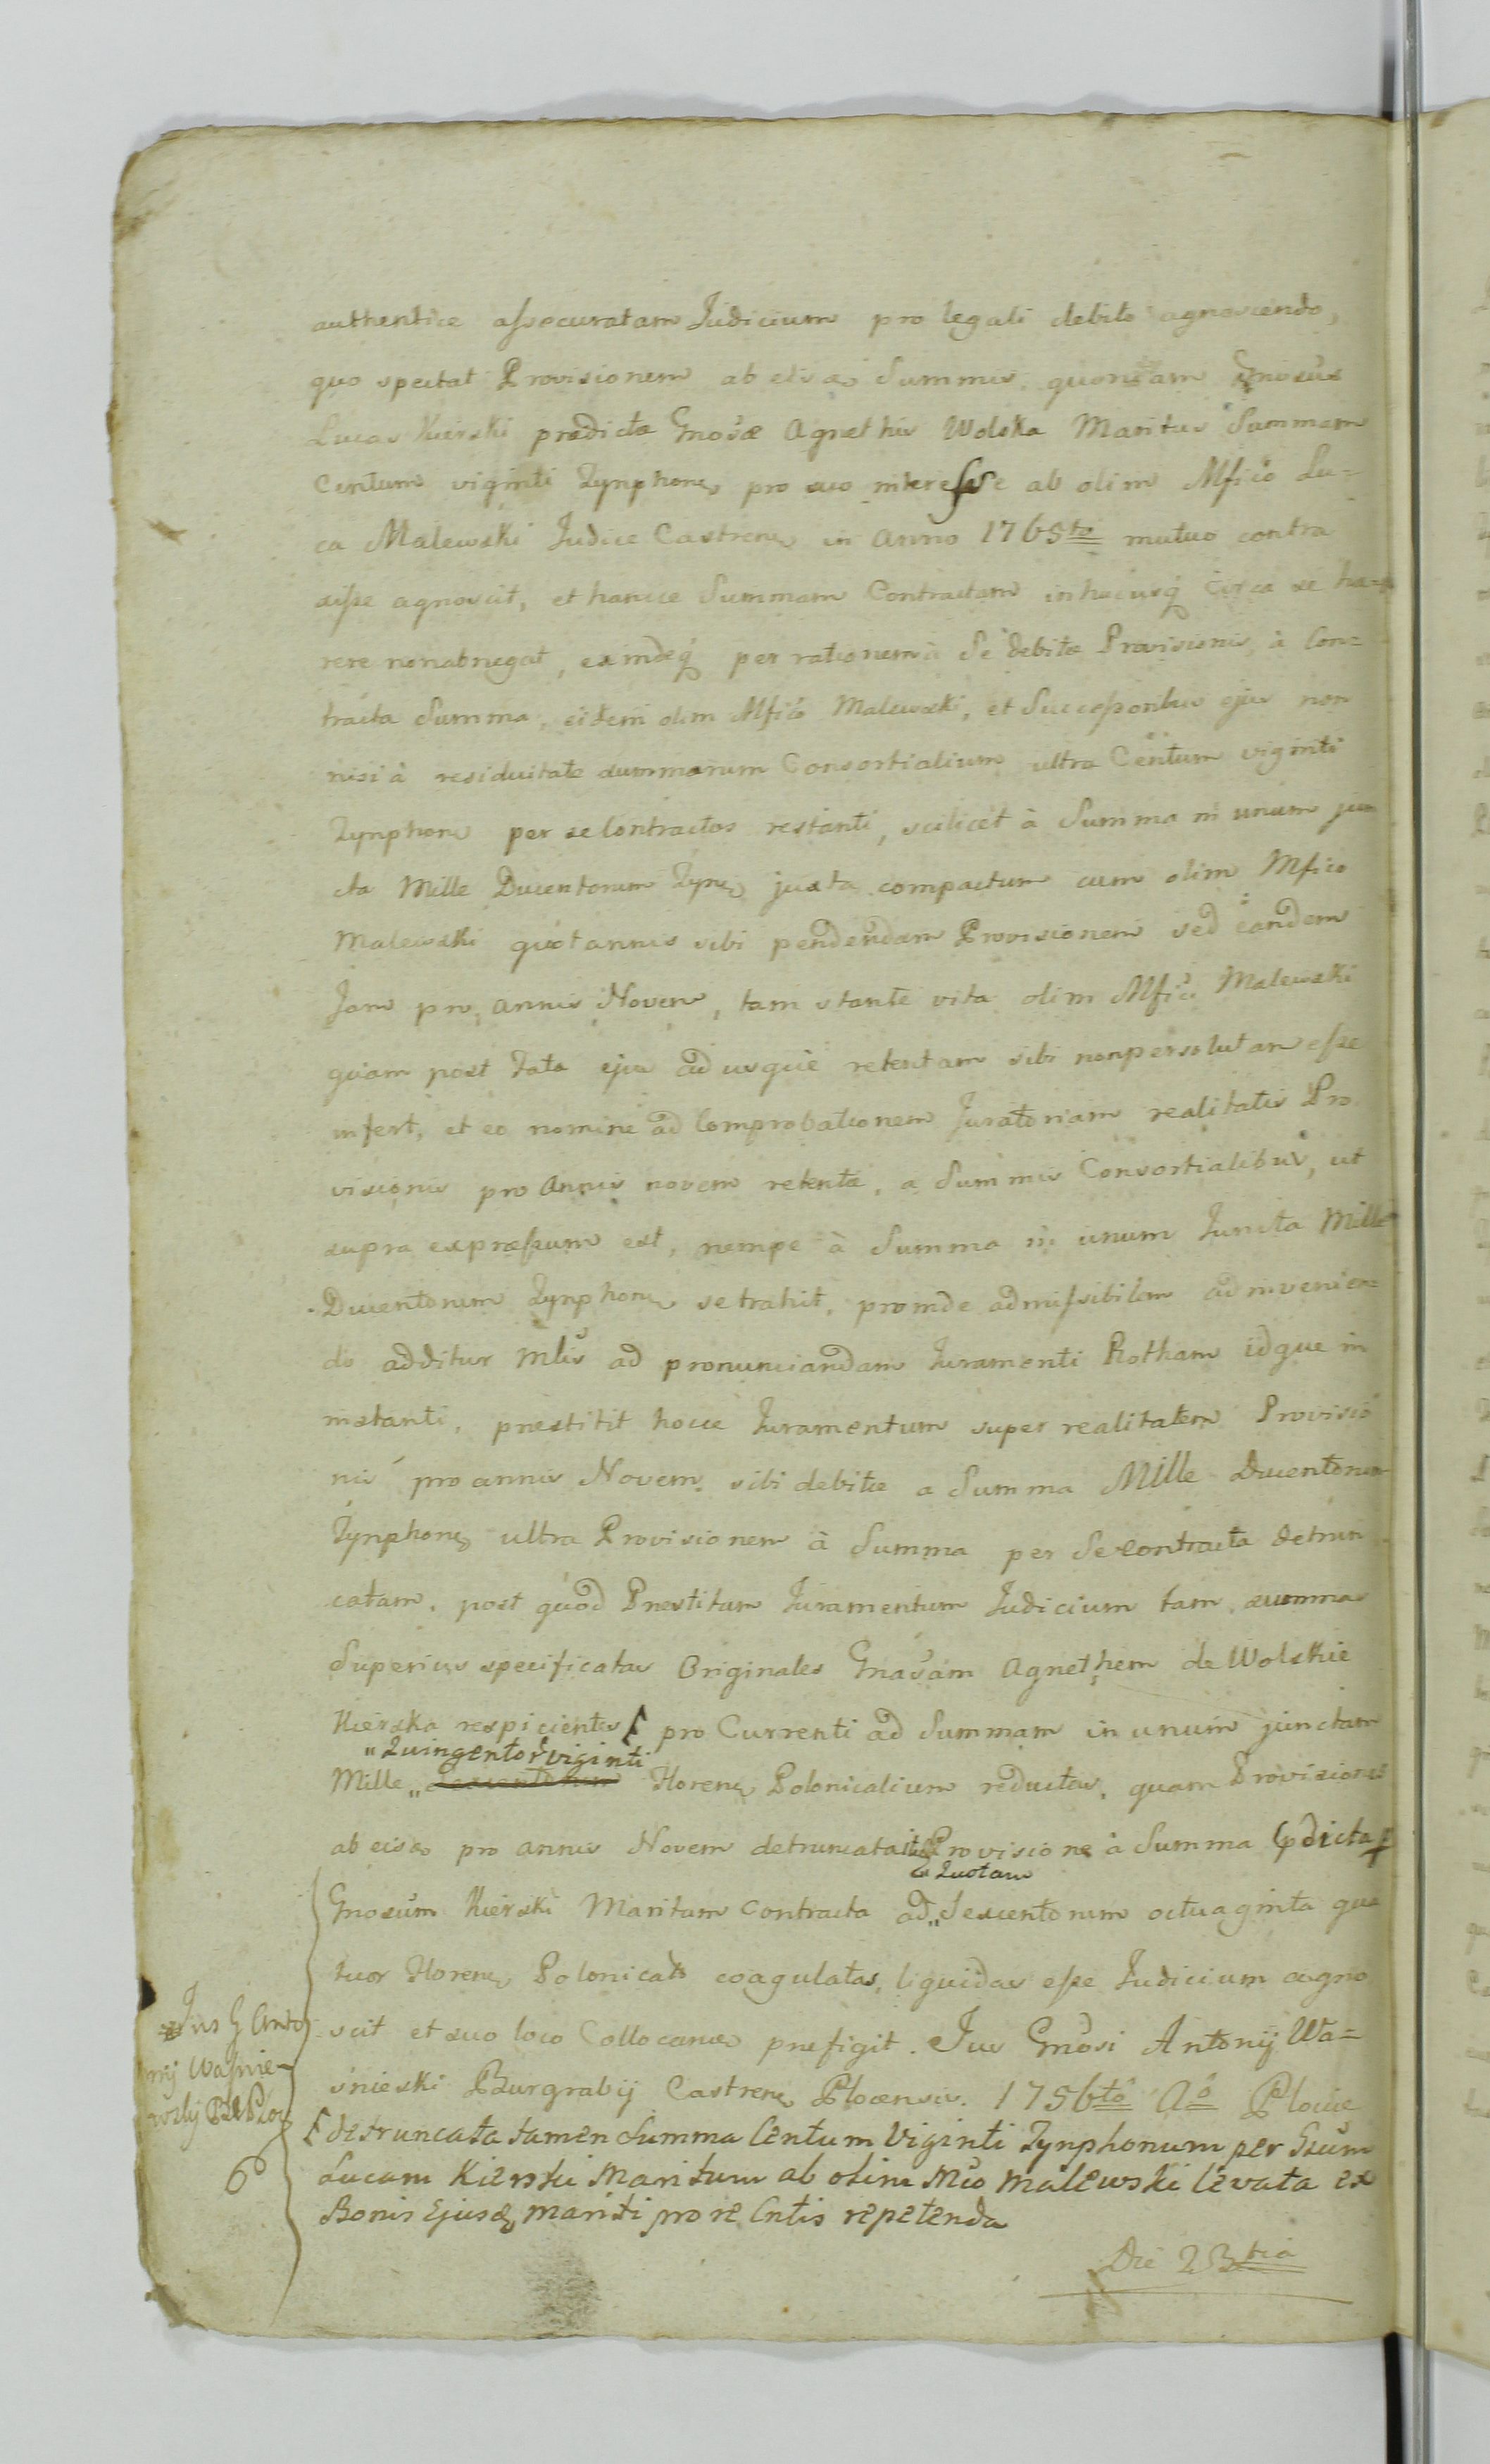 authentice assecuratam Judicium pro legali debito agnoscendo,
quo spectat Provisionem ab eisdem Summis quoniam Gnosus
Lucas Kierski prædictæ Gnosæ Agnethis Wolska Maritus Summam
Centum viginti Tynphonum pro suo interesse ab olim Mfico Lu=
ca Malewski Judice Castrensi in Anno 1765to mutuo contra
xisse agnoscit, et hancce Summam Contractam in hucusq circa se hæ=
rere nonabnegat, exindeq per rationem à Se debitæ Provisionis, à Con=
tracta Summa, eidem olim Mfico Malewski, et Successoribus ejus non
nisi à residuitate summarum Consortialium ultra Centum viginti
Tynphon per se Contractos restanti, scilicet à Summa in unum jun
cta Mille Ducentorum Tynf juxta compactum cum olim Mfico
Malewski quotannis sibi pendendam Provisionem sed eandem
Jam pro annis Novem, tam stante vita olim Mfici Malewski
quam post Fata ejus ad usque retentam sibi nonpersolutam esse
infert, et eo nomine ad Comprobationem Juratoriam realitatis Pro
visionis pro Annis novem retentæ, a Summis Consortialibus, ut
supra expressum est, nempe à Summa in unum Juncta Mille
Ducentorum Tynphon se trahit, proinde admissibilem ad invenien=
do additur Mlis ad pronunciandam Juramenti Rotham idque in
instanti, præstitit hocce Juramentum super realitatem Provisio
nis pro annis Novem sibi debitæ a Summa Mille Ducentorum
Tynphon ultra Provisionem à Summa per Se contracta detrun
catam, post quod Præstitum Juramentum Judicium tam summas
Superius specificatas Originales Gnosam Agnethem de Wolskie
Kierska respicientes pro Currenti ad Summam in unum junctam
"Quingentor viginti
Mille " Floren Polonicalium reductas, quam Provisiones
ab eisdem pro annis Novem detruncata Provisione à Summa p dicta
Quotam
Gnosum Kierski Maritum contracta ad " Sexcentorum octuaginta qua
tuor Floren Polonical coagulatas, liquidas esse Judicium agno
scit et suo loco Collocanda prefigit. Jus Gnosi Antonij Wa=
śnieski Burgrabij Castren Plocensis. 1756to Ao Plocie
detruncata tamen Summa Centum Viginti Tynphonum per Gsum
Lucam Kierski Maritum ab olim Mco Malewski levata ex
Bonis Ejusd mariti pro re Cntis repetenda
Jus G Anto
nij Waśnie=
wski B Ploc
6
Die 23tia